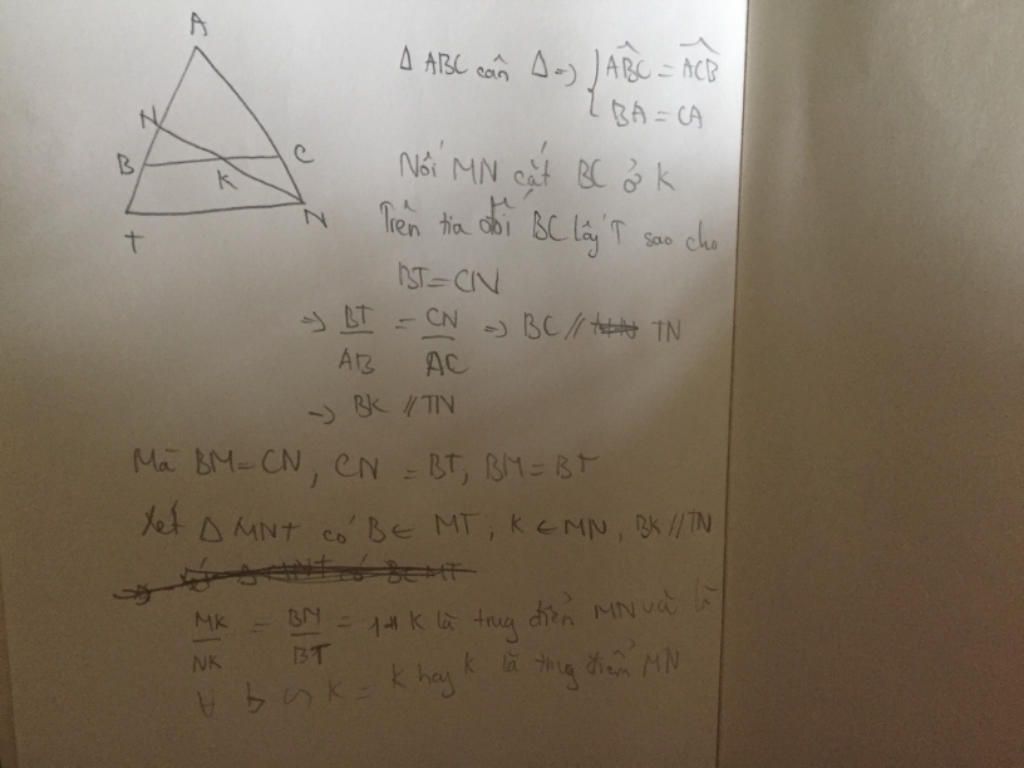 A
N
B
C
K
N
T
Δ ABC cân Δ => { ABC = ACB
BA = CA
Nối MN cắt BC ở K
Trên tia đối BC lấy T sao cho
BT = CN
=> BT/AB = CN/AC => BC // TN
=> BK // TN
Mà BM = CN, CN = BT, BM = BT
Xét Δ MNT có B ∈ MT, K ∈ MN, BK // TN
MK/NK = BM/BT = 1 K là trug điểm MN và là
K = K hay K là trug điểm MN